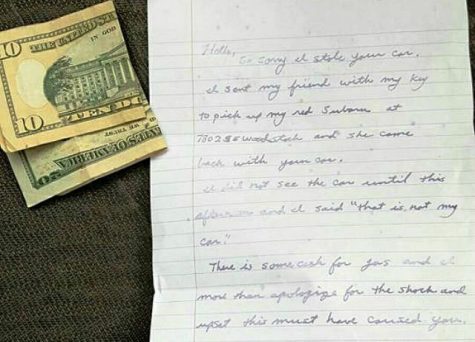 10
THE UNITED STATES
IN GOD
10
TEN DO
WE TRUST
OF AMERICA
20
Hello,
So sorry I stole your car.
I sent my friend with my key
to pick up my red Subaru at
7802 SE Woodstock and she came
back with your car.
I did not see the car until this
afternoon and I said "that is not my
car."
There is some cash for gas and I
more than apologize for the shock and
upset this must have caused you.